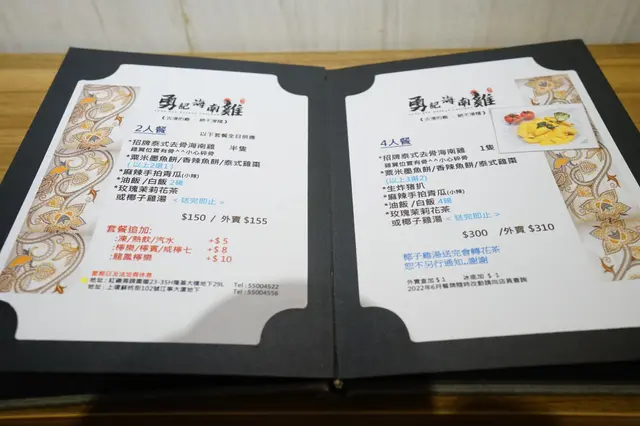 勇記海南雞
2人餐
以下套餐全日供應
*招牌泰式去骨海南雞 半隻
雞翼位置有骨^^小心碎骨
*粟米墨魚餅/香辣魚餅/泰式雞棗
(以上2選1)
*麻辣手拍青瓜(小辣)
*油飯/白飯 2碗
*玫瑰茉莉花茶
或椰子雞湯 <送完即止>
$150 / 外賣 $155
套餐追加:
:凍/熱飲/汽水 +$ 5
:檸樂/檸賓/咸檸七 +$ 8
:龍鳳檸樂 +$ 10
星期日及法定假休息
Tel : 55004522
Tel : 55004556
勇記海南雞
4人餐
*招牌泰式去骨海南雞 1隻
雞翼位置有骨^^小心碎骨
*粟米墨魚餅/香辣魚餅/泰式雞棗
(以上3選2)
*生炸豬扒
*麻辣手拍青瓜(小辣)
*油飯/白飯 4碗
*玫瑰茉莉花茶
或椰子雞湯 <送完即止>
$300 /外賣 $310
椰子雞湯送完會轉花茶
恕不另行通知,,謝謝
外賣盒加$1 冰底加 $ 1
2022年6月餐牌隨時改動請向店員查詢